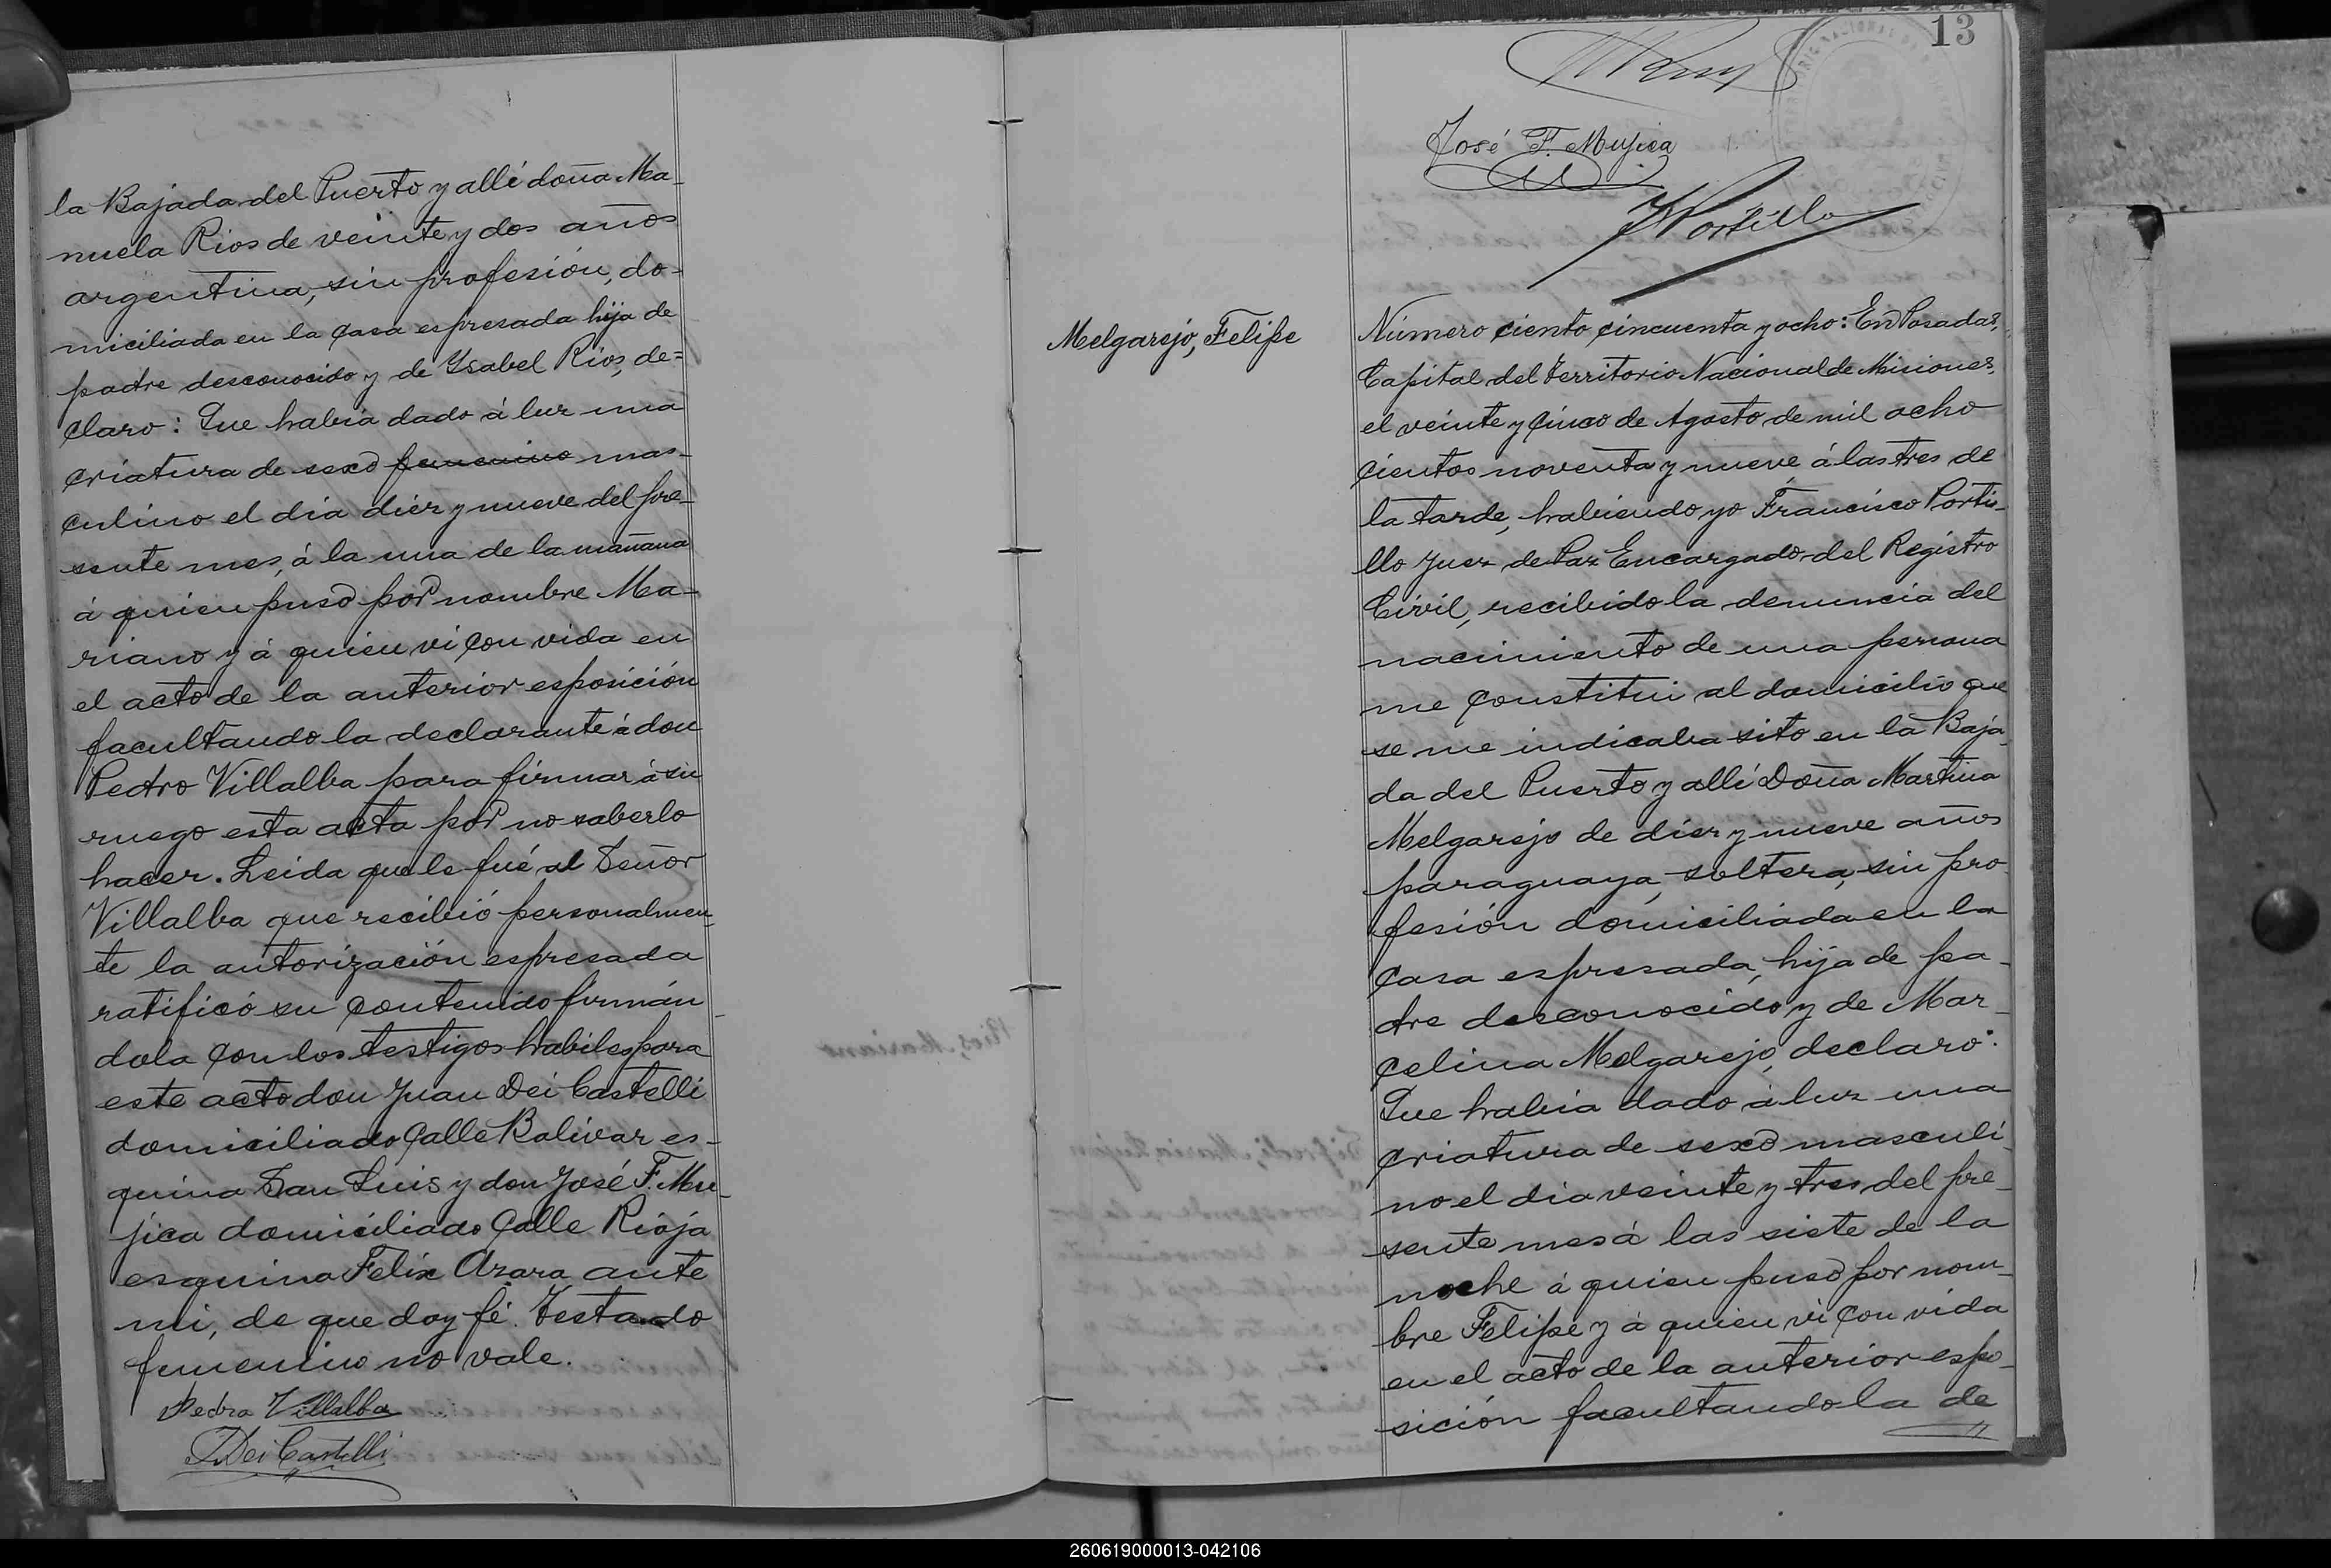 la Bajada del Puerto y allí doña Ma-
nuela Rios de veinte y dos años
argentina, sin profesión, do-
miciliada en la casa espresada hija de
padre desconocido y de Ysabel Rios, de-
claro: Que habia dado á luz una
criatura de sexo femenino mas-
culino el dia diez y nueve del pre-
sente mes, á la una de la mañana
á quien puso por nombre Ma-
riano y á quien vi con vida en
el acto de la anterior esposición
facultando la declarante á don
Pedro Villalba para firmar á su
ruego esta acta por no saberlo
hacer. Leida que le fué al Señor
Villalba que recibió personalmen-
te la autorización espresada
ratificó su contenido firmán
dola con los testigos habiles para
este acto don Juan Dei Castelli
domiciliado Calle Bolivar es-
quina San Luis y don José F. Mu-
jica domiciliado Calle Rioja
esquina Felix Azara, ante
mi, de que doy fé. Testado
femenino no vale.
Pedro Villalba
J. Dei Castelli
13
José F. Mujica
Portillo
Melgarejo, Felipe
Número ciento cincuenta y ocho: En Posadas,
Capital del Territorio Nacional de Misiones,
el veinte y cinco de Agosto de mil ocho
cientos noventa y nueve á las tres de
la tarde, habiendo yo Francisco Porti-
llo Juez de Paz Encargado del Registro
Civil, recibido la denuncia del
nacimiento de una persona
me constitui al domicilio que
se me indicaba sito en la Baja
da del Puerto y allí Doña Martina
Melgarejo de diez y nueve años
paraguaya, soltera, sin pro
fesión domiciliada en la
casa espresada, hija de pa-
dre desconocido y de Mar-
celina Melgarejo, declaro:
Que habia dado á luz una
criatura de sexo masculi-
no el dia veinte y tres del pre-
sente mes á las siete de la
noche á quien puso por nom-
bre Felipe y á quien vi con vida
en el acto de la anterior espo-
sición facultando la de
260619000013-042106